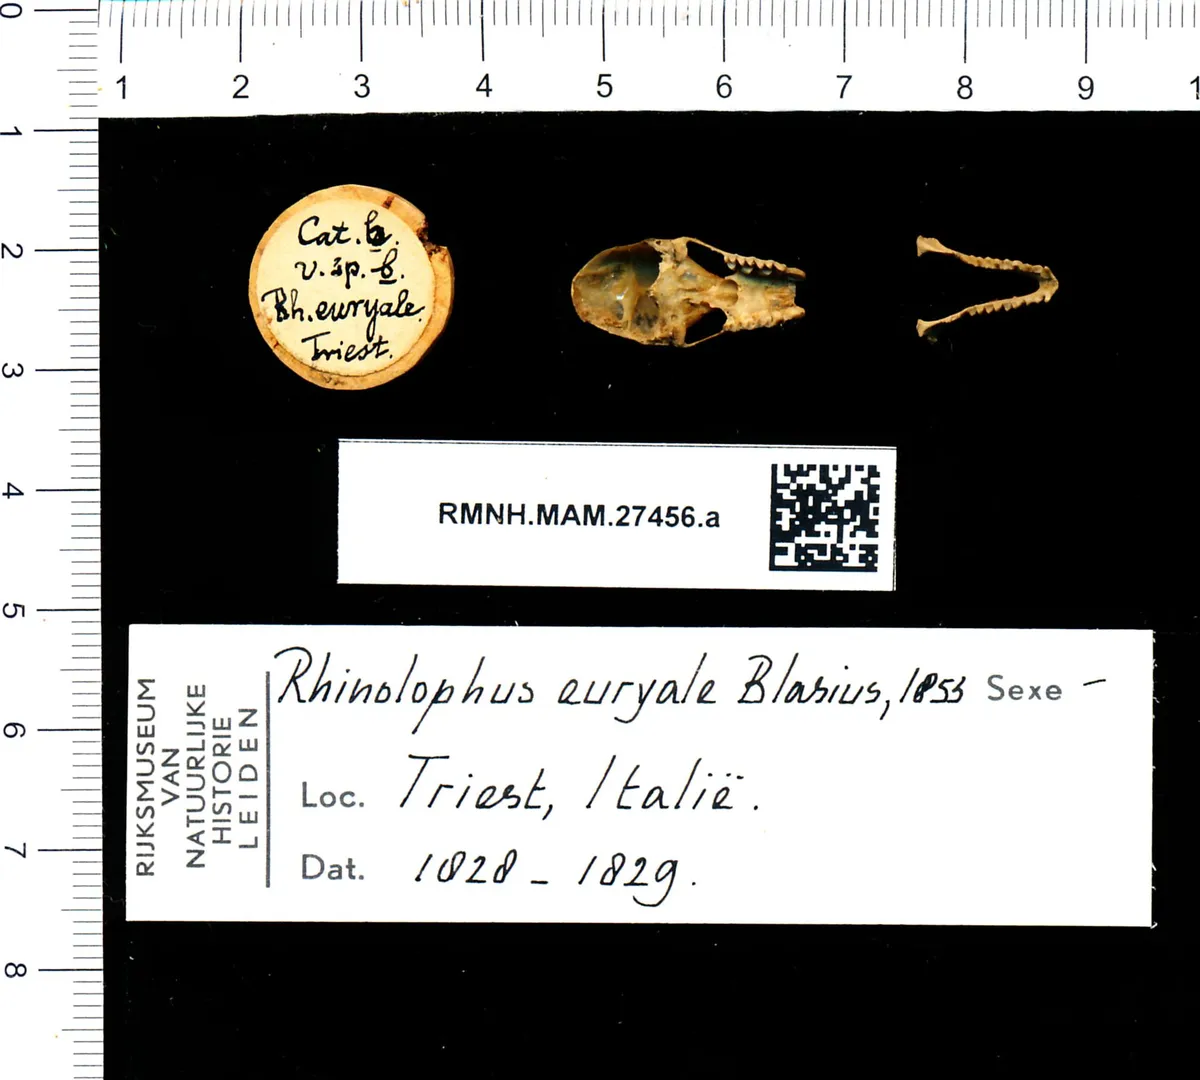 0
1 2 3 4 5 6 7 8 9 1
1
2
3
4
5
6
7
8
Cat. b.
v. sp. b.
Rh. euryale.
Triest.
RMNH.MAM.27456.a
RIJKSMUSEUM
VAN
NATUURLIJKE
HISTORIE
LEIDEN
Rhinolophus euryale Blasius, 1853 Sexe –
Loc. Triest, Italië.
Dat. 1828 – 1829.